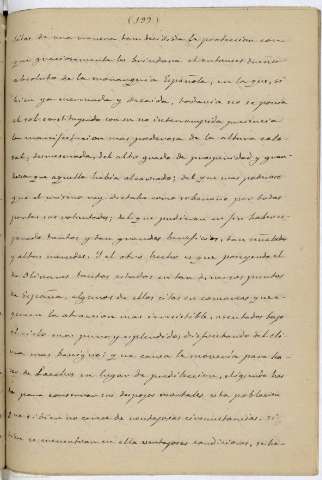 (199)
de una manera tan decidida la proteccion con
que graciosamente les brindara el entonces dueño
absoluto de la monarquía Española, en la que, si
bien ya mermada y decaida, todavia no se ponia
el sol constituyendo con su no interrumpida presencia
la manifestacion mas poderosa de la altura colo-
sal, desmesurada, del alto grado de prosperidad y gran-
deza que aquella habia alcanzado; del que mas poderoso
que el mismo rey dictaba como soberano por todas
partes sus voluntades; del que pudieran en fin haberse
tantos y tan grandes beneficios, tan
y altas mercedes. Y el otro hecho es que poseyendo el
de Olivares tantos estados en tan diversos puntos
de España, algunos de ellos sitos en comarcas que
la atraccion mas irresistible, asentados bajo
el cielo mas puro y esplendido, disfrutando del cli-
ma mas benigno; que causa le moveria para ha-
cer de Loeches su lugar de predileccion, eligiendo
la para conservar sus despojos mortales esta poblacion
que si bien no carece de ventajosas circunstancias, si
bien se encuentran en ella ventajosas condiciones, se ha-